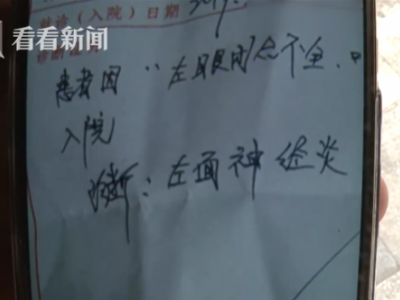 （入院）日期
看看新闻
患者因 “左眼闭合不全.”
入院
诊断：左面神经炎